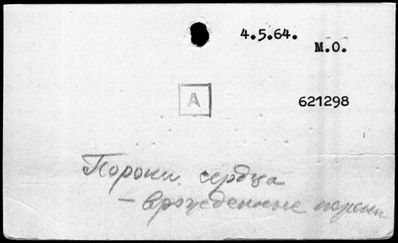 4.5.64.
М.О.
А
621298
Пороки сердца
– врожденные пороки